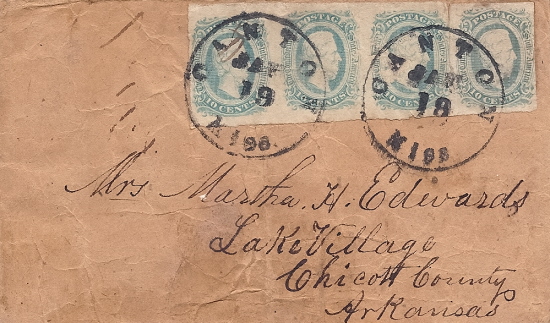 POSTAGE POSTAGE POSTAGE POSTAGE
10 CENTS 10 CENTS 10 CENTS 10 CENTS
CANTON
19
MISS.
CANTON
19
MISS.
Mrs Martha. H. Edwards
Lake Village
Chicott County
Arkansas